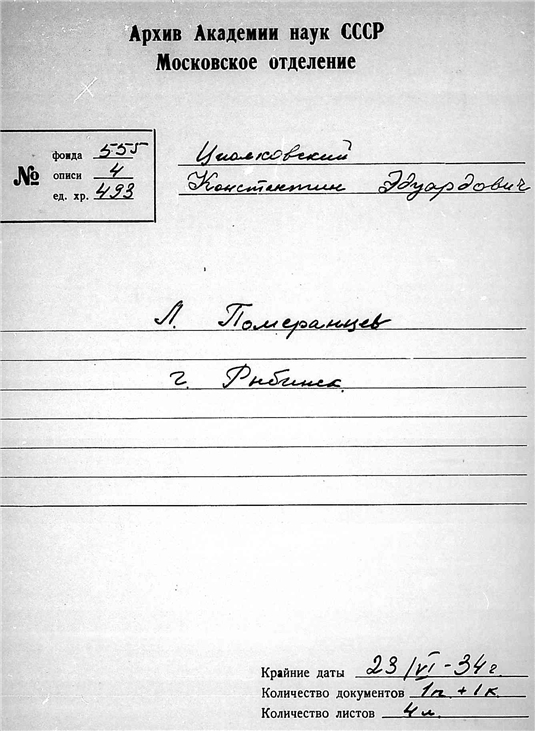 Архив Академии наук СССР
Московское отделение
№
фонда 555
описи 4
ед. хр. 493
Циолковский
Константин Эдуардович
Л. Померанцев
г. Рыбинск.
Крайние даты 23/VI-34г.
Количество документов 1п. + 1к.
Количество листов 4л.